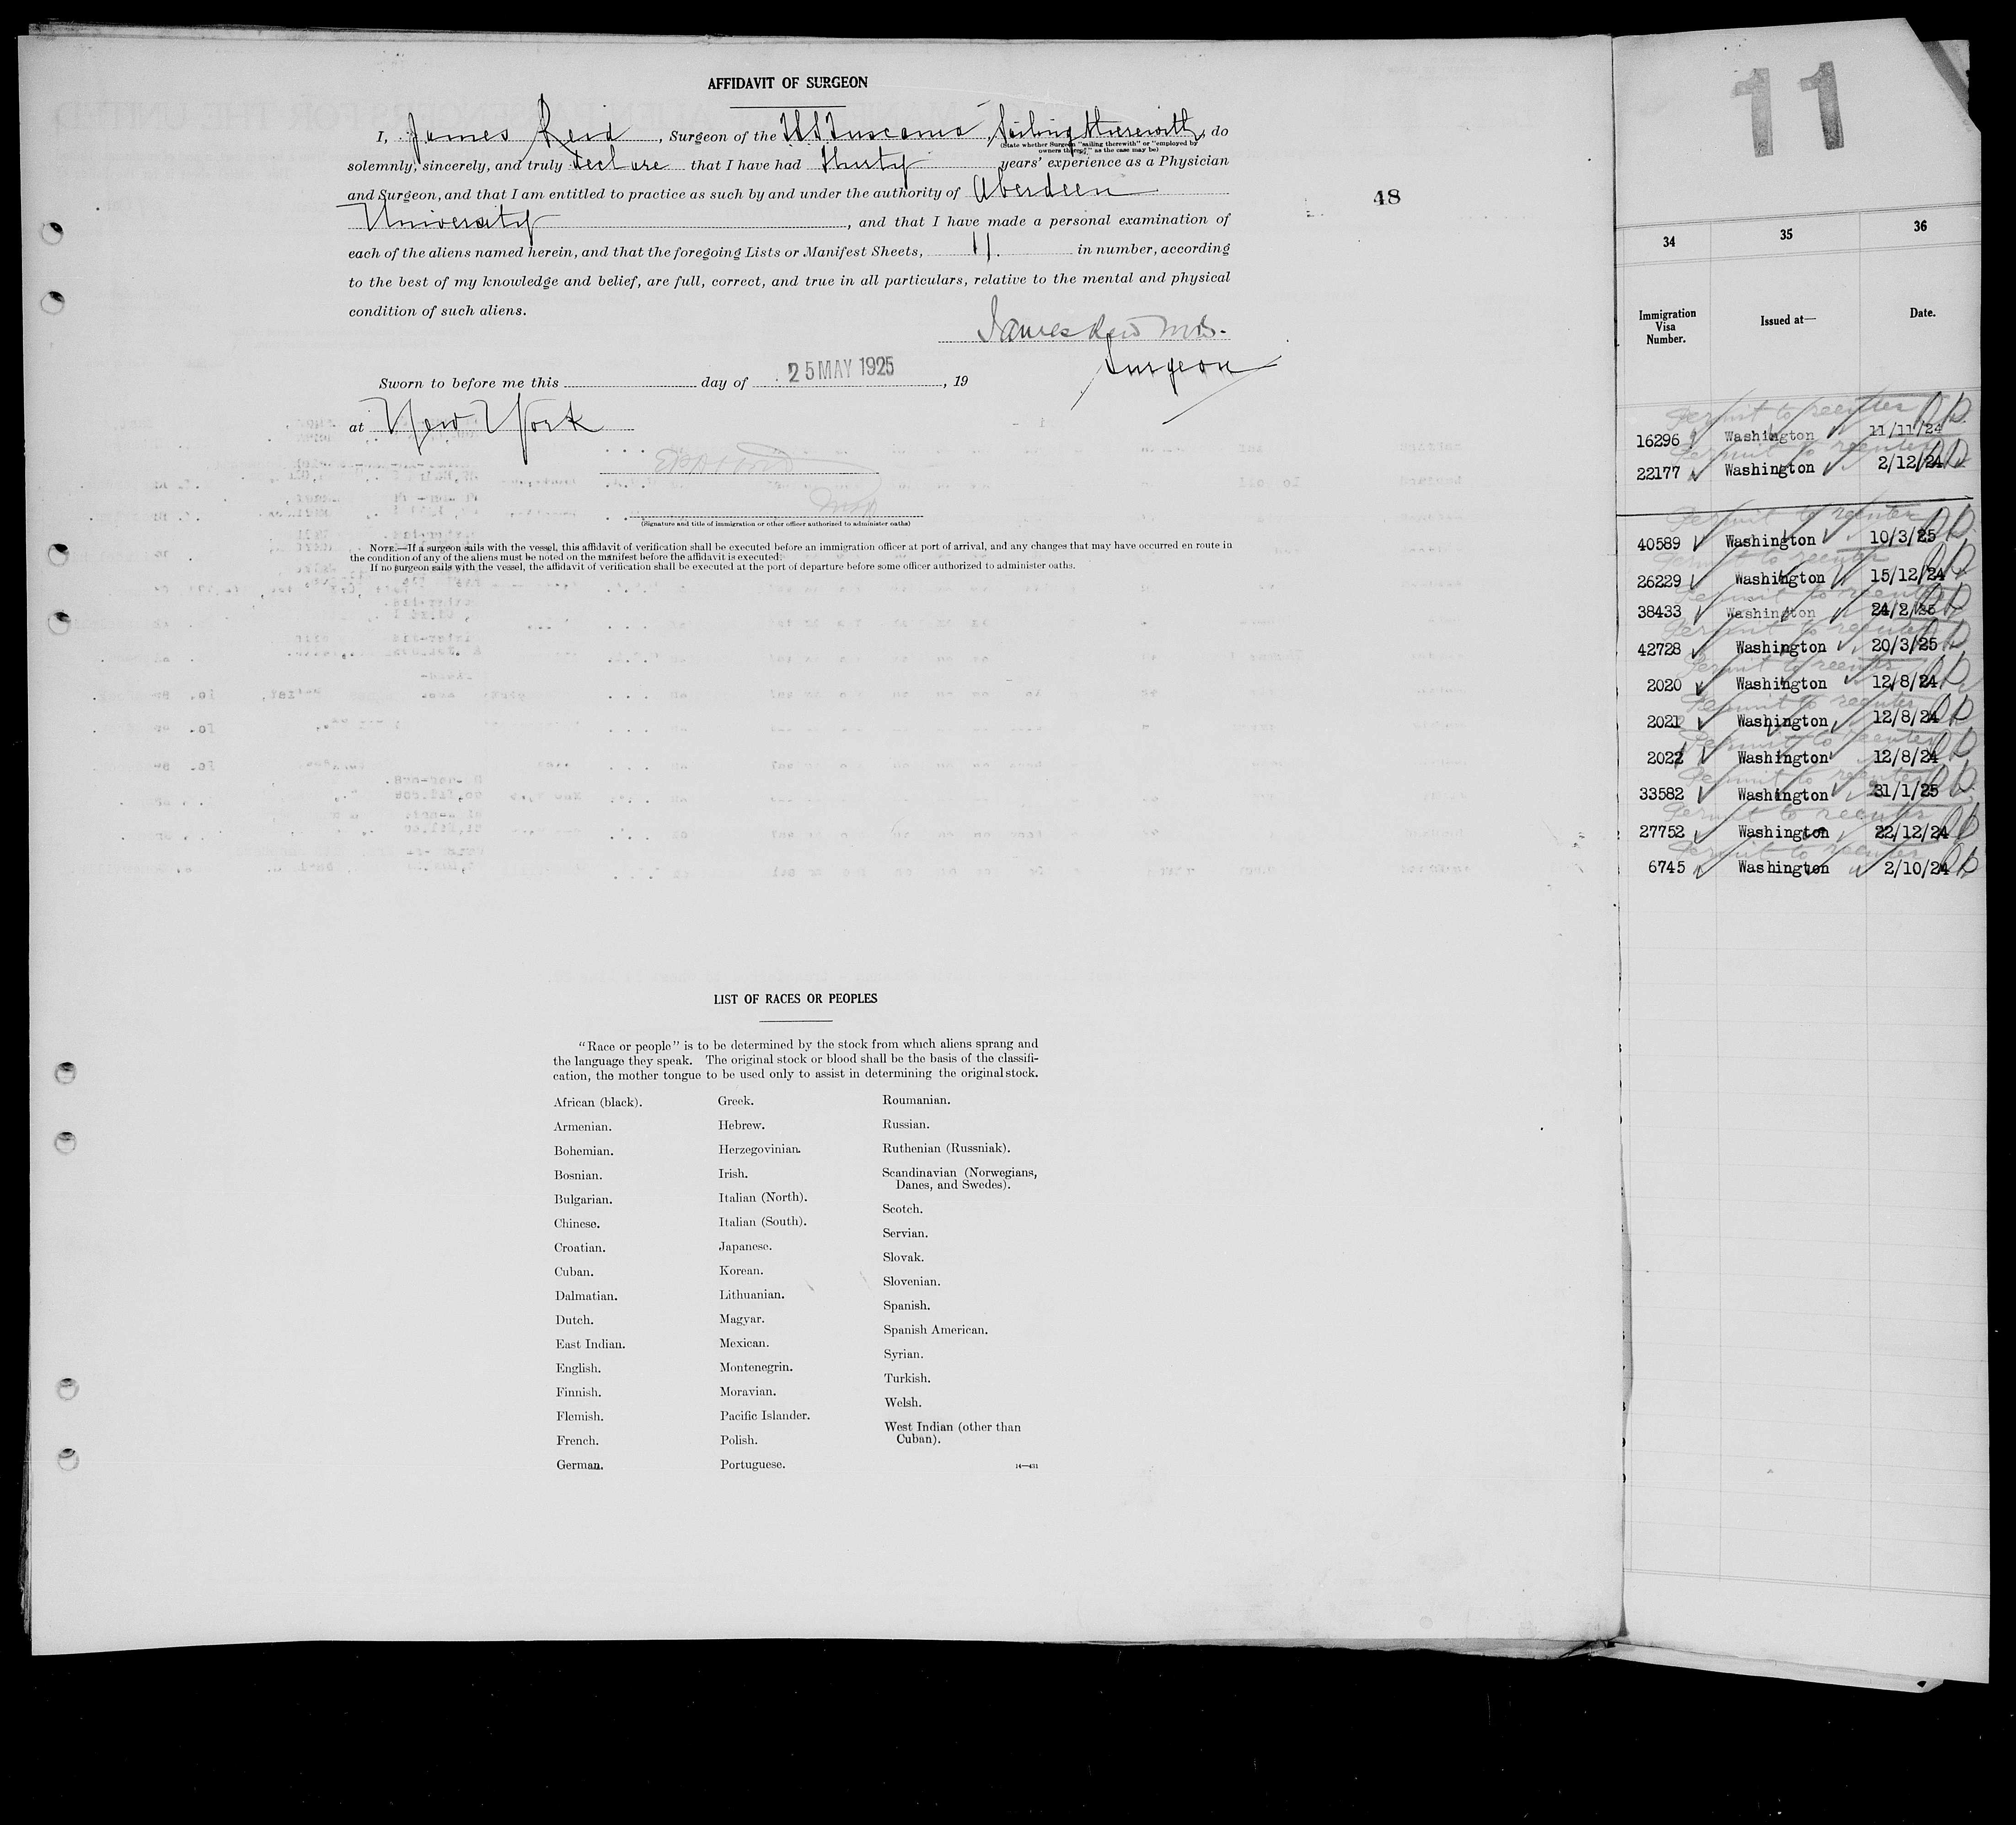 AFFIDAVIT OF SURGEON
I, James Reid, Surgeon of the T.S.S Tuscania, Sailing therewith, do
(State whether Surgeon "sailing therewith" or "employed by
owners thereof," as the case may be)
solemnly, sincerely, and truly declare that I have had thirty years' experience as a Physician
and Surgeon, and that I am entitled to practice as such by and under the authority of Aberdeen
University, and that I have made a personal examination of
each of the aliens named herein, and that the foregoing Lists or Manifest Sheets, 11. in number, according
to the best of my knowledge and belief, are full, correct, and true in all particulars, relative to the mental and physical
condition of such aliens.
James Reid M.B.
Surgeon
Sworn to before me this day of 25 MAY 1925, 19
at New York
(Signature and title of immigration or other officer authorized to administer oaths)
NOTE.—If a surgeon sails with the vessel, this affidavit of verification shall be executed before an immigration officer at port of arrival, and any changes that may have occurred en route in
the condition of any of the aliens must be noted on the manifest before the affidavit is executed.
If no surgeon sails with the vessel, the affidavit of verification shall be executed at the port of departure before some officer authorized to administer oaths.
48
LIST OF RACES OR PEOPLES
"Race or people" is to be determined by the stock from which aliens sprang and
the language they speak. The original stock or blood shall be the basis of the classifi-
cation, the mother tongue to be used only to assist in determining the original stock.
African (black).
Armenian.
Bohemian.
Bosnian.
Bulgarian.
Chinese.
Croatian.
Cuban.
Dalmatian.
Dutch.
East Indian.
English.
Finnish.
Flemish.
French.
German.
Greek.
Hebrew.
Herzegovinian.
Irish.
Italian (North).
Italian (South).
Japanese.
Korean.
Lithuanian.
Magyar.
Mexican.
Montenegrin.
Moravian.
Pacific Islander.
Polish.
Portuguese.
Roumanian.
Russian.
Ruthenian (Russniak).
Scandinavian (Norwegians,
Danes, and Swedes).
Scotch.
Servian.
Slovak.
Slovenian.
Spanish.
Spanish American.
Syrian.
Turkish.
Welsh.
West Indian (other than
Cuban).
14—431
11
34 35 36
Immigration
Visa
Number.
Issued at—
Date.
Permit to reenter
16296 Washington 11/11/24
Permit to reenter
22177 Washington 2/12/24
Permit to reenter
40589 Washington 10/3/25
Permit to reenter
26229 Washington 15/12/24
Permit to reenter
38433 Washington 24/2/25
Permit to reenter
42728 Washington 20/3/25
Permit to reenter
2020 Washington 12/8/24
Permit to reenter
2021 Washington 12/8/24
Permit to reenter
2022 Washington 12/8/24
Permit to reenter
33582 Washington 31/1/25
Permit to reenter
27752 Washington 22/12/24
Permit to reenter
6745 Washington 2/10/24